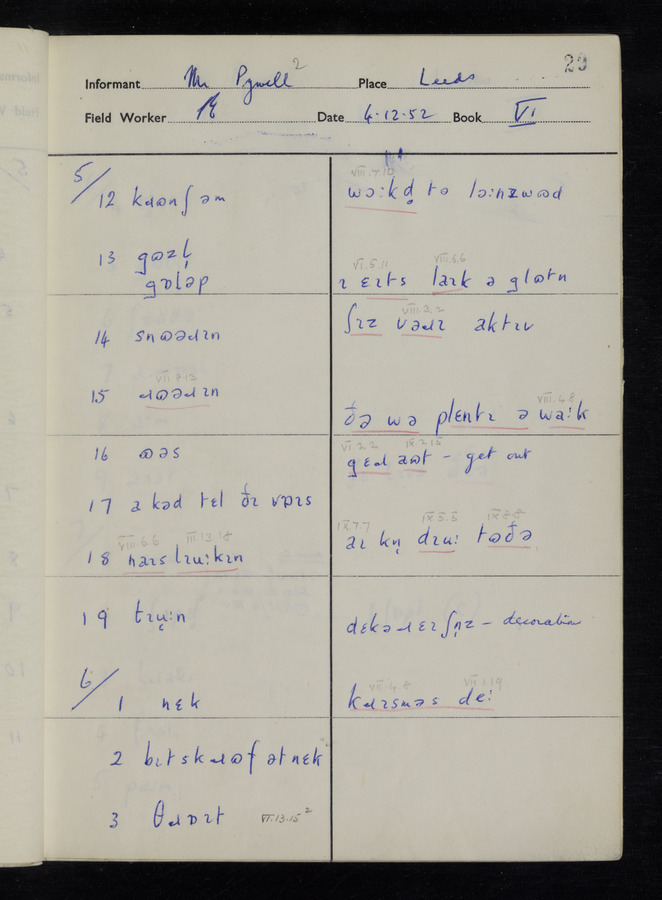 29
Informant Mr Pywell 2
Place Leeds
Field Worker
Date 4.12.52 Book VI
5/
12 kɹɷnʃəm
13 gɷzl̩
gɒləp
14 snɷəɹɪn
VII.8.13
15 ɹɷəɹɪn
16 ɷəs
17 a kəd tɛl ðɪ vɒɪs
VIII.6.6 III.13.18
18 naɪs lɪu:kɪn
19
6/
1 nɛk
2 bɪt skɹɷf ət nɛk
3 θɹɒɪt VI.13.15 2
VIII.7.10
wɔ:kd̥ tə lɔ:nzwɷd
VI.5.11 VIII.6.6
ɪ ɛɪts laɪk ə glɷtn
VIII.3.2
ʃɪz vəɹɪ aktɪv
VIII.4.8
ðə wə plɛntɪ ə wa:k
VI.2.2 IX.2.15
gɛɹ aɷt – get out
IX.7.7 IX.5.5 IX.8.8
aɪ kn̩ dɪu: tɷðə
dɛkəɹɛɪʃn̩z – decoration
VII.4.8 VII.1.19
kɹɪsməs de: